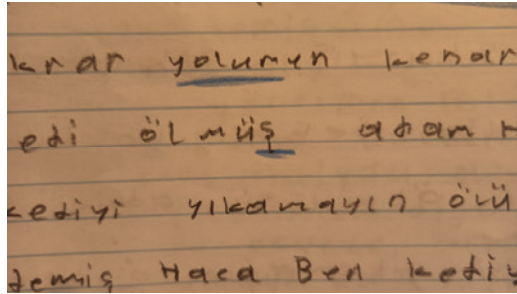 krar yolumun kenar
edi ölmüş adam
kediyi yıkamayın ölü
demiş Haca Ben kediy